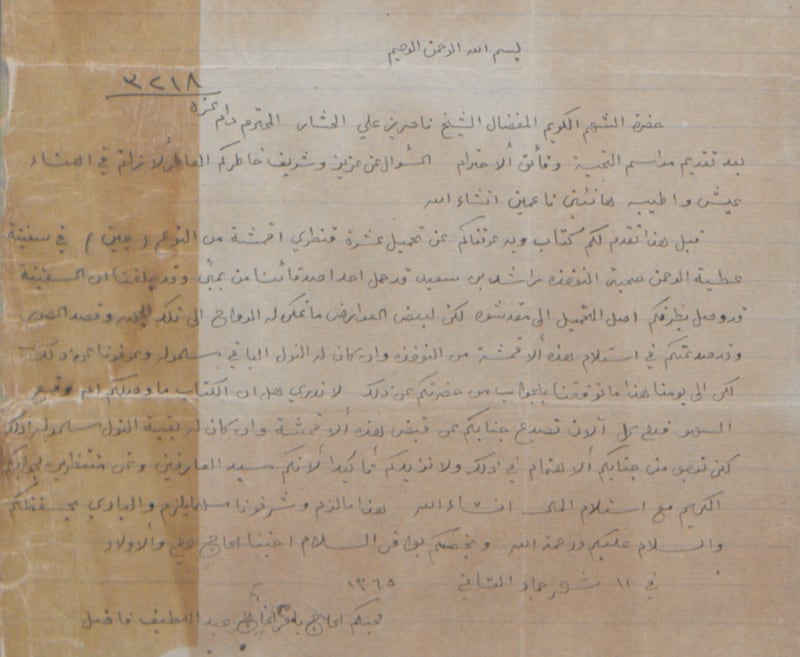 بسم الله الرحمن الرحيم
٣٢١٨
حضرة الشهم الكريم المفضال الشيخ ناصر بن علي الخشار المحترم دام عزه
بعد تقديم مراسم التحية وفائق ألاحترام السؤال عن عزيز وشريف خاطركم العاطر لا زلتم في اهناء
عيش واطيبه هانئين ناعمين انشاء الله
قبل هذا تقدم لكم كتاب وبه عرفناكم عن تحميل عشرة قنطري اقمشة من النوع ( جين ) في سفينة
عطية الرحمن صحبة النوخذه راشد بن سعيد قد حمل احد اصدقائنا من بمبئ وقد بلغنا ان السفينة
قد وصل بطرفكم اصل التحميل الى مقدشوه لكن لبعض العوارض ما تمكن له الرواح الى تلك الجهه وقصد
وقد صدعتكم في استلام هذه ألاقمشة من النوخذه وان كان له النول الباقي سلموله وعرفونا عن ذلك
لكن الى يومنا هذا ما توفقنا بالجواب من حضرتكم عن ذلك لا ندري هل ان الكتاب ما وصلكم ام وقع
السهو فعلى كل آلان نصدع جنابكم عن قبض هذه ألاقمشة وان كان له بقية النول سلموله اذلك
لكن نرجو من جنابكم ألاهتمام في ذلك ولا نزيدكم تأكيدا لأنكم سيد العارفين ونحن منتظرين لجوابكم
الكريم مع استلام المال انشاء الله هذا ما لزم وشرفونا بما يلزم والباري يحفظكم
والسلام عليكم ورحمة الله ونخصكم بوافر السلام اخينا الحاج والاولاد
في ١١ شهر جماد الثاني ١٣٦٥
محبكم الحاج باقر الحاج عبد اللطيف فاضل